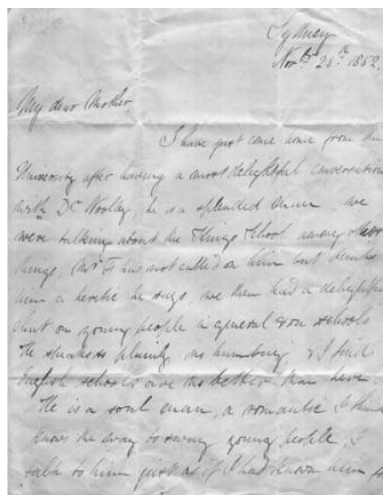 Sydney
Novbr 28th 1852.
My dear Mother,
I have just come home from the
University after having a most delightful conversation
with Dr Woolley, he is a splendid man, we
were talking about the Kings School among other
things, Mr F has not called on him but thinks
him a heretic he says, we then had a delightful
chat on young people in general & on schools
He speaks so plainly no humbug, & I find
English schools are no better than here.
He is a soul man, a romantic I think
knows the way to sway young people, I
talk to him just as if I had known him